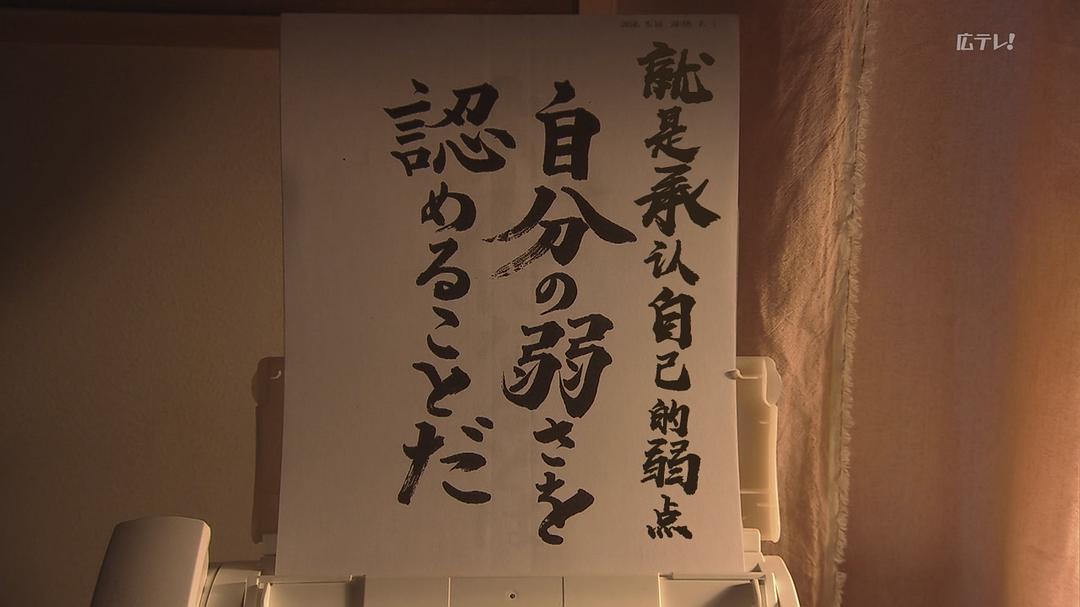 就是承认自己的弱点
自分の弱さを
認めることだ
広テレ!